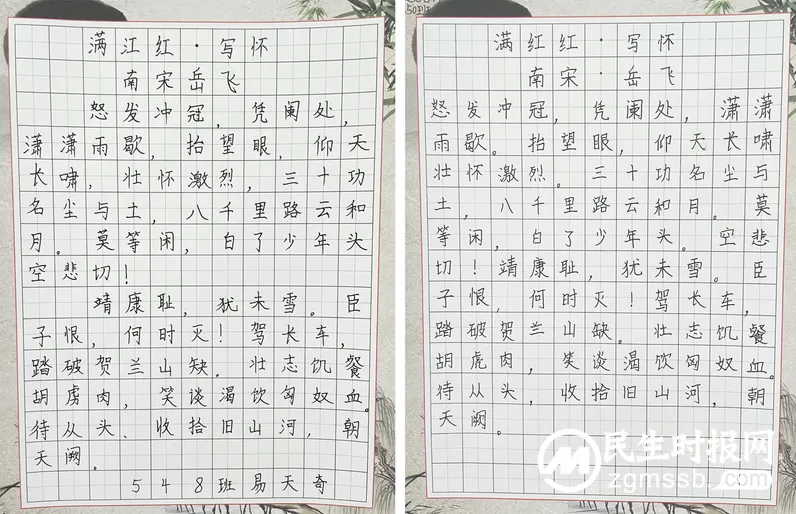 满江红·写怀
南宋岳飞
怒发冲冠，凭阑处，
潇潇雨歇，抬望眼，仰天
长啸，壮怀激烈，三十功
名尘与土，八千里路云和
月。莫等闲，白了少年头
空悲切！
靖康耻，犹未雪。臣
子恨，何时灭！驾长车，
踏破贺兰山缺。壮志饥餐
胡虏肉，笑谈渴饮匈奴血。
待从头、收拾旧山河，朝
天阙。
548班易天奇
满红红·写怀
南宋·岳飞
怒发冲冠，凭阑处，潇潇
雨歇。抬望眼，仰天长啸
壮怀激烈。三十功名尘与
土，八千里路云和月。莫
等闲，白了少年头。空悲
切！靖康耻，犹未雪。臣
子恨，何时灭！驾长车，
踏破贺兰山缺。壮志饥餐
胡虏肉，笑谈渴饮匈奴血。
待从头，收拾旧山河，朝
天阙。
民生时报网
zgmssb.com